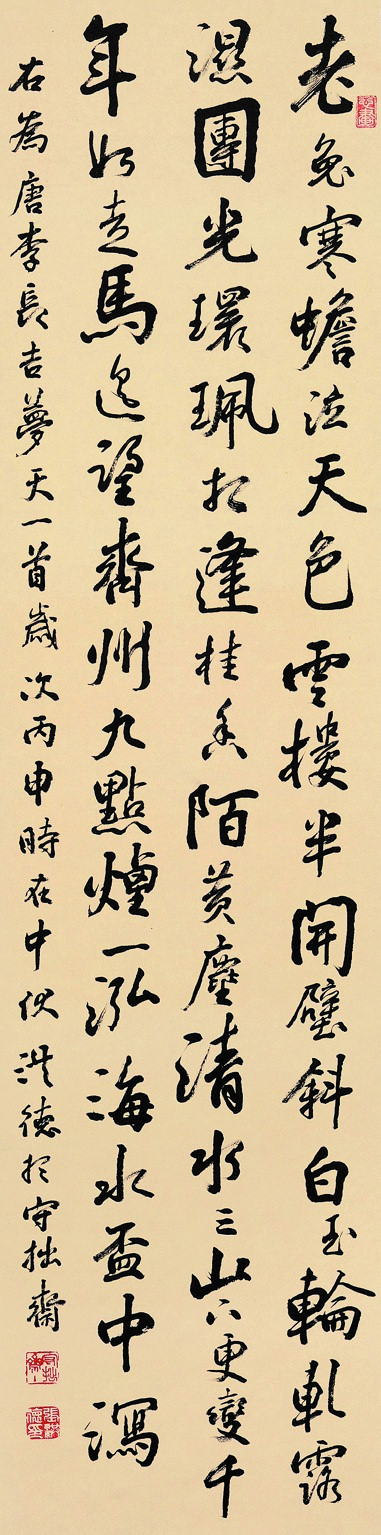 老兔寒蟾泣天色雲樓半開壁斜白玉輪軋露
濕團光環珮相逢桂香陌黃塵清水三山下更變千
年如走馬遙望齊州九點煙一泓海水盃中瀉
右為唐李長吉夢天一首歲次丙申時在中伏洪德於守拙齋